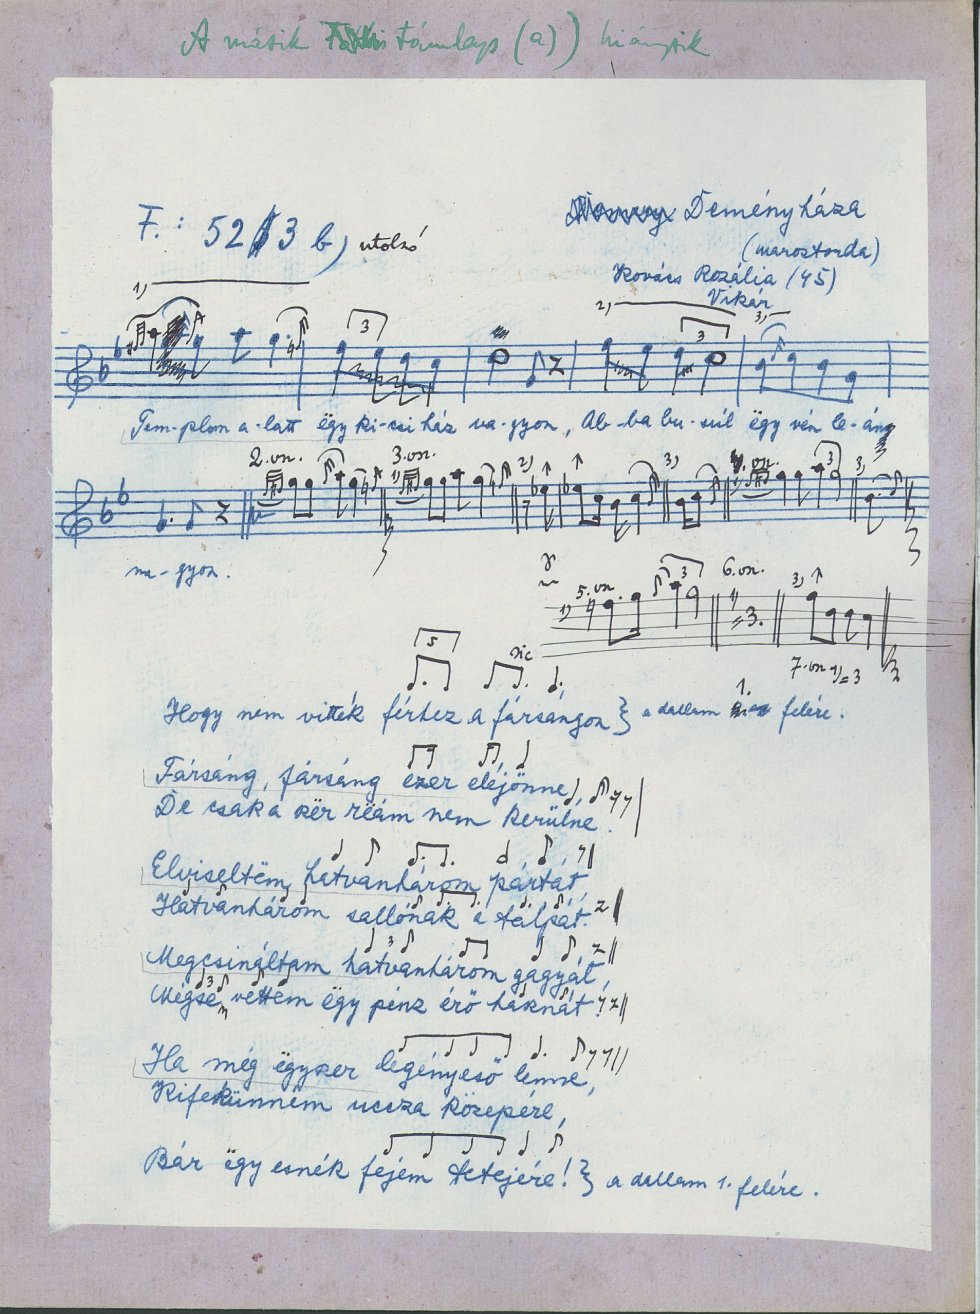 A másik támlap (a)) hiányzik
F.: 523 b) utolsó
Deményháza
(marostorda)
Kovács Rozália (45)
Vikár
1)
2)
3)
3
3
Tem-plom a-latt ëgy ki-csi ház va-gyon, Ab-ba bu-súl ëgy vén le-ány
2. vn. 3. vn. 1) 2) 3) 4. vn. 1) 3 3)
na-gyon.
1) 5. vn. 3 6. vn. 1) =3. 3)
7. vn 1)=3
5 sic
Hogy nem vitték férhez a fársangon } a dallam 1. felére.
Fársáng, fársáng ezer eléjönne,
De csak a kër rëám nem kerülne.
Elviseltëm hatvanhárom pártát,
Hatvanhárom sallónak a tálpát.
3
Megcsináltam hatvanhárom gagyát,
3
Mégse vettëm ëgy pénz érő haknát.
Ha még ëgyszer legényeső lenne,
Kifekünném ucsza közepére,
Bár ëgy esnék fejem tetejére! } a dallam 1. felére.